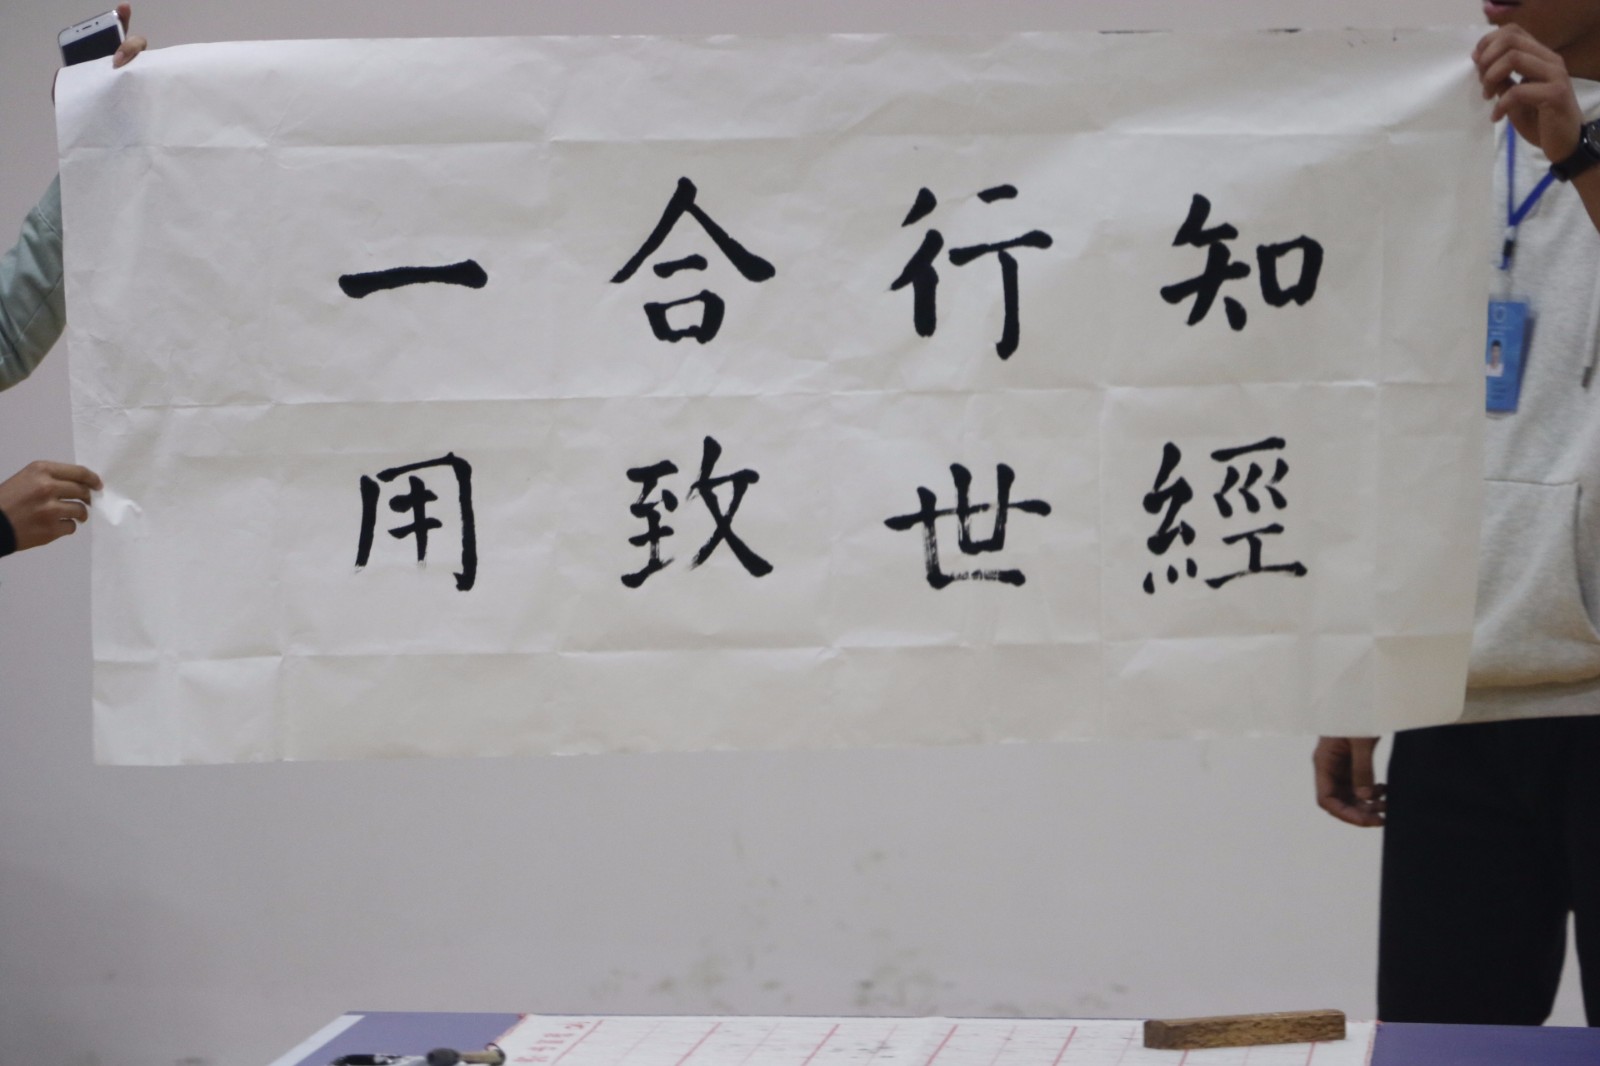 知行合一
經世致用